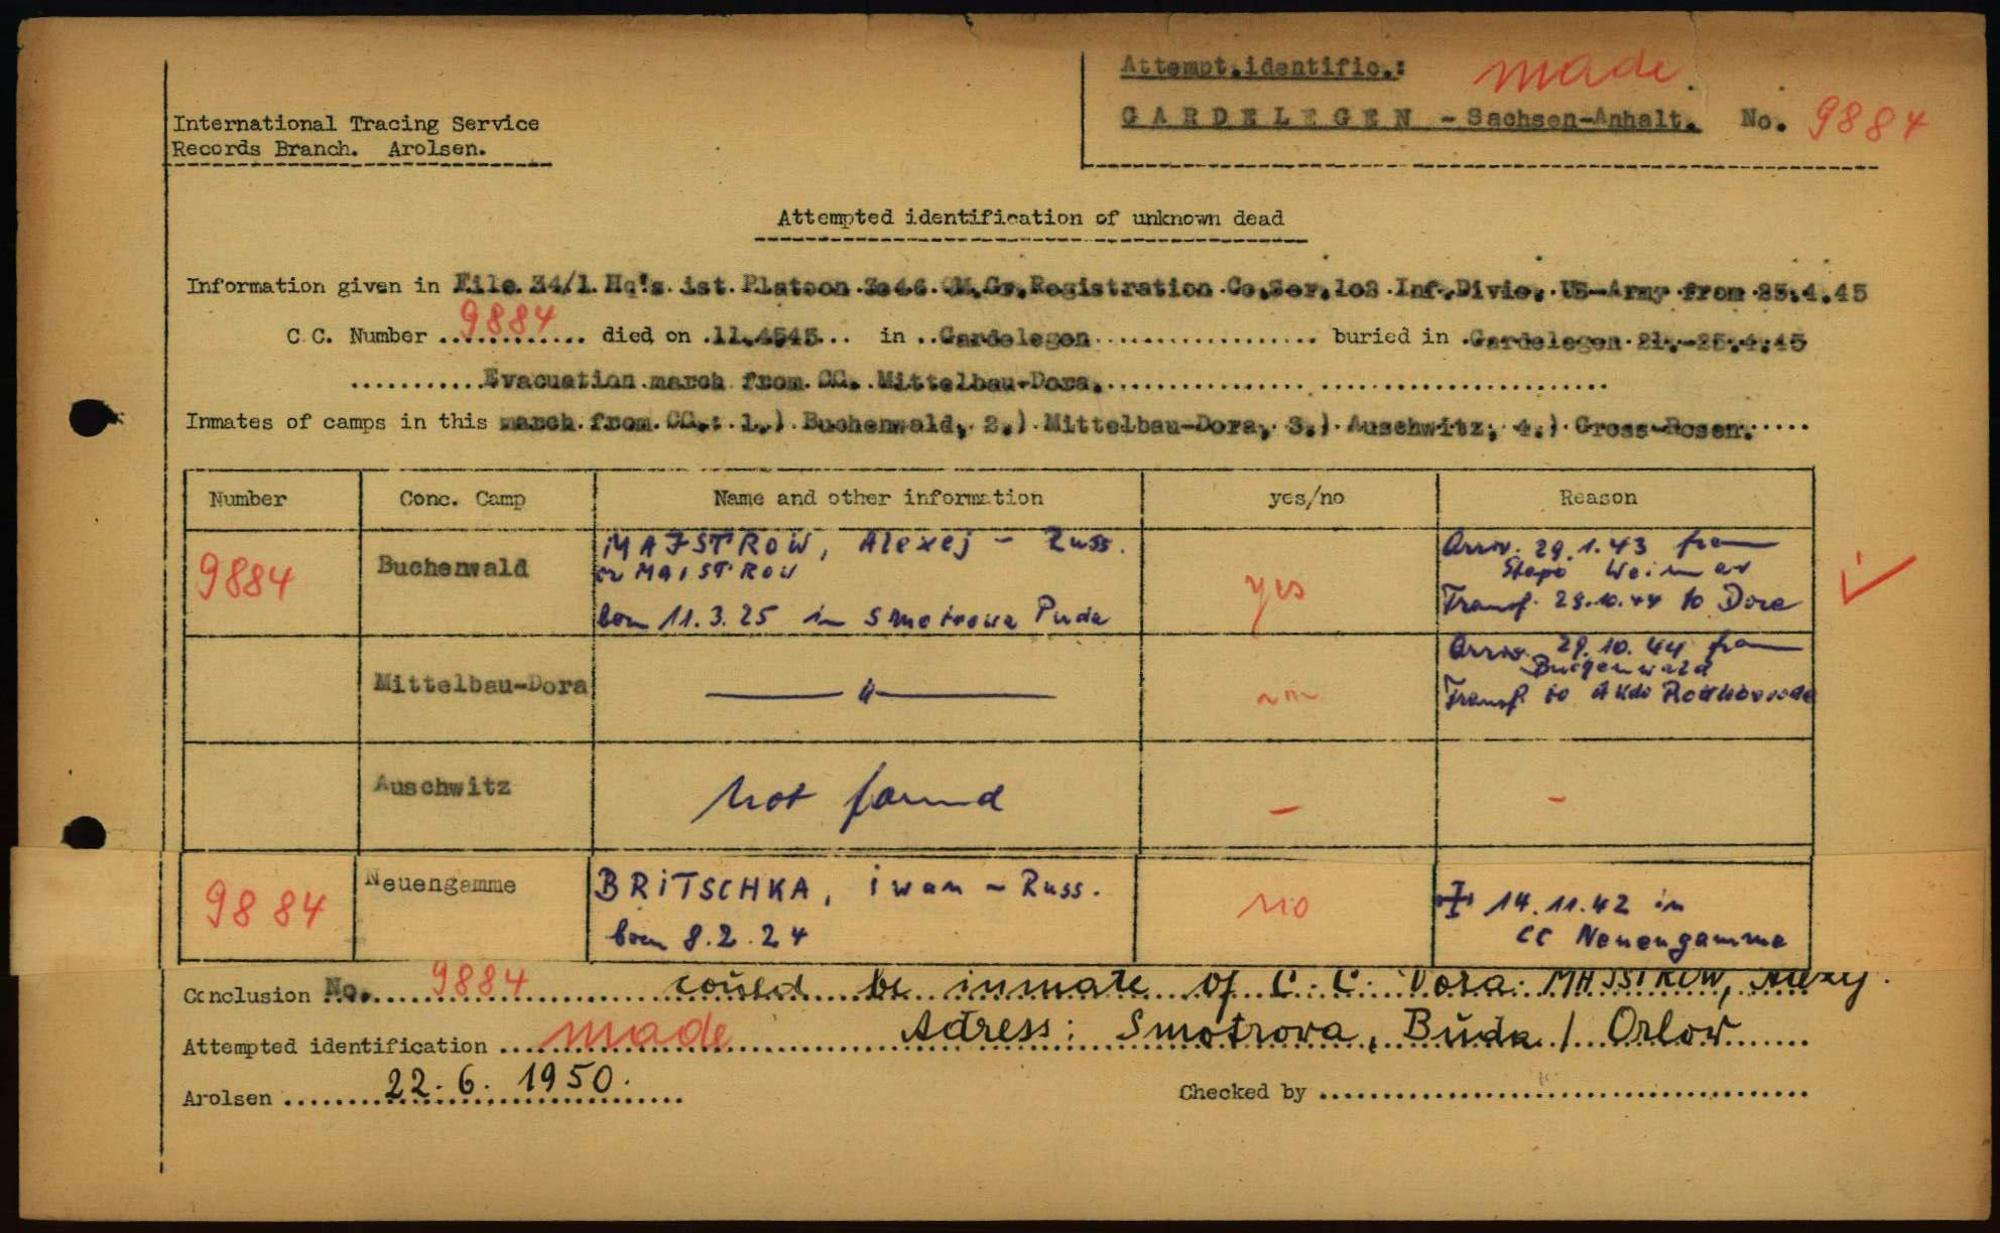 Attempt.identific.: made
International Tracing Service
GARDELEGEN - Sachsen-Anhalt. No. 9884
Records Branch. Arolsen.
Attempted identification of unknown dead
Information given in File 34/1 Hq's ist. Platoon 3046 QM.Gr.Registration Co.Ser.102 Inf.Divis. US-Army from 25.4.45
C.C. Number 9884 died on 11.4545 in Gardelegen buried in Gardelegen 21.-25.4.45
Evacuation march from CC. Mittelbau-Dora.
Inmates of camps in this march from CC.: 1.) Buchenwald, 2.) Mittelbau-Dora, 3.) Auschwitz, 4.) Gross-Rosen.
Number Conc. Camp Name and other information yes/no Reason
9884 Buchenwald MAJSTROW, Alexej - Russ. yes Arriv. 29.1.43 from
or MAISTROW Stapo Weimar
born 11.3.25 in Smotrowa Puda Transf. 29.10.44 to Dora
Mittelbau-Dora — " — Arriv. 29.10.44 from
Buchenwald
Transf to Akdo
Auschwitz not found - -
9884 Neuengamme BRITSCHKA, iwan - Russ. no 14.11.42 in
born 8.2.24 CC Neuengamme
Conclusion No. 9884 could be inmate of C.C. Dora: MAJSTROW, Alexy.
Attempted identification made Adress: Smotrova, Buda / Orlow
Arolsen 22.6.1950. Checked by